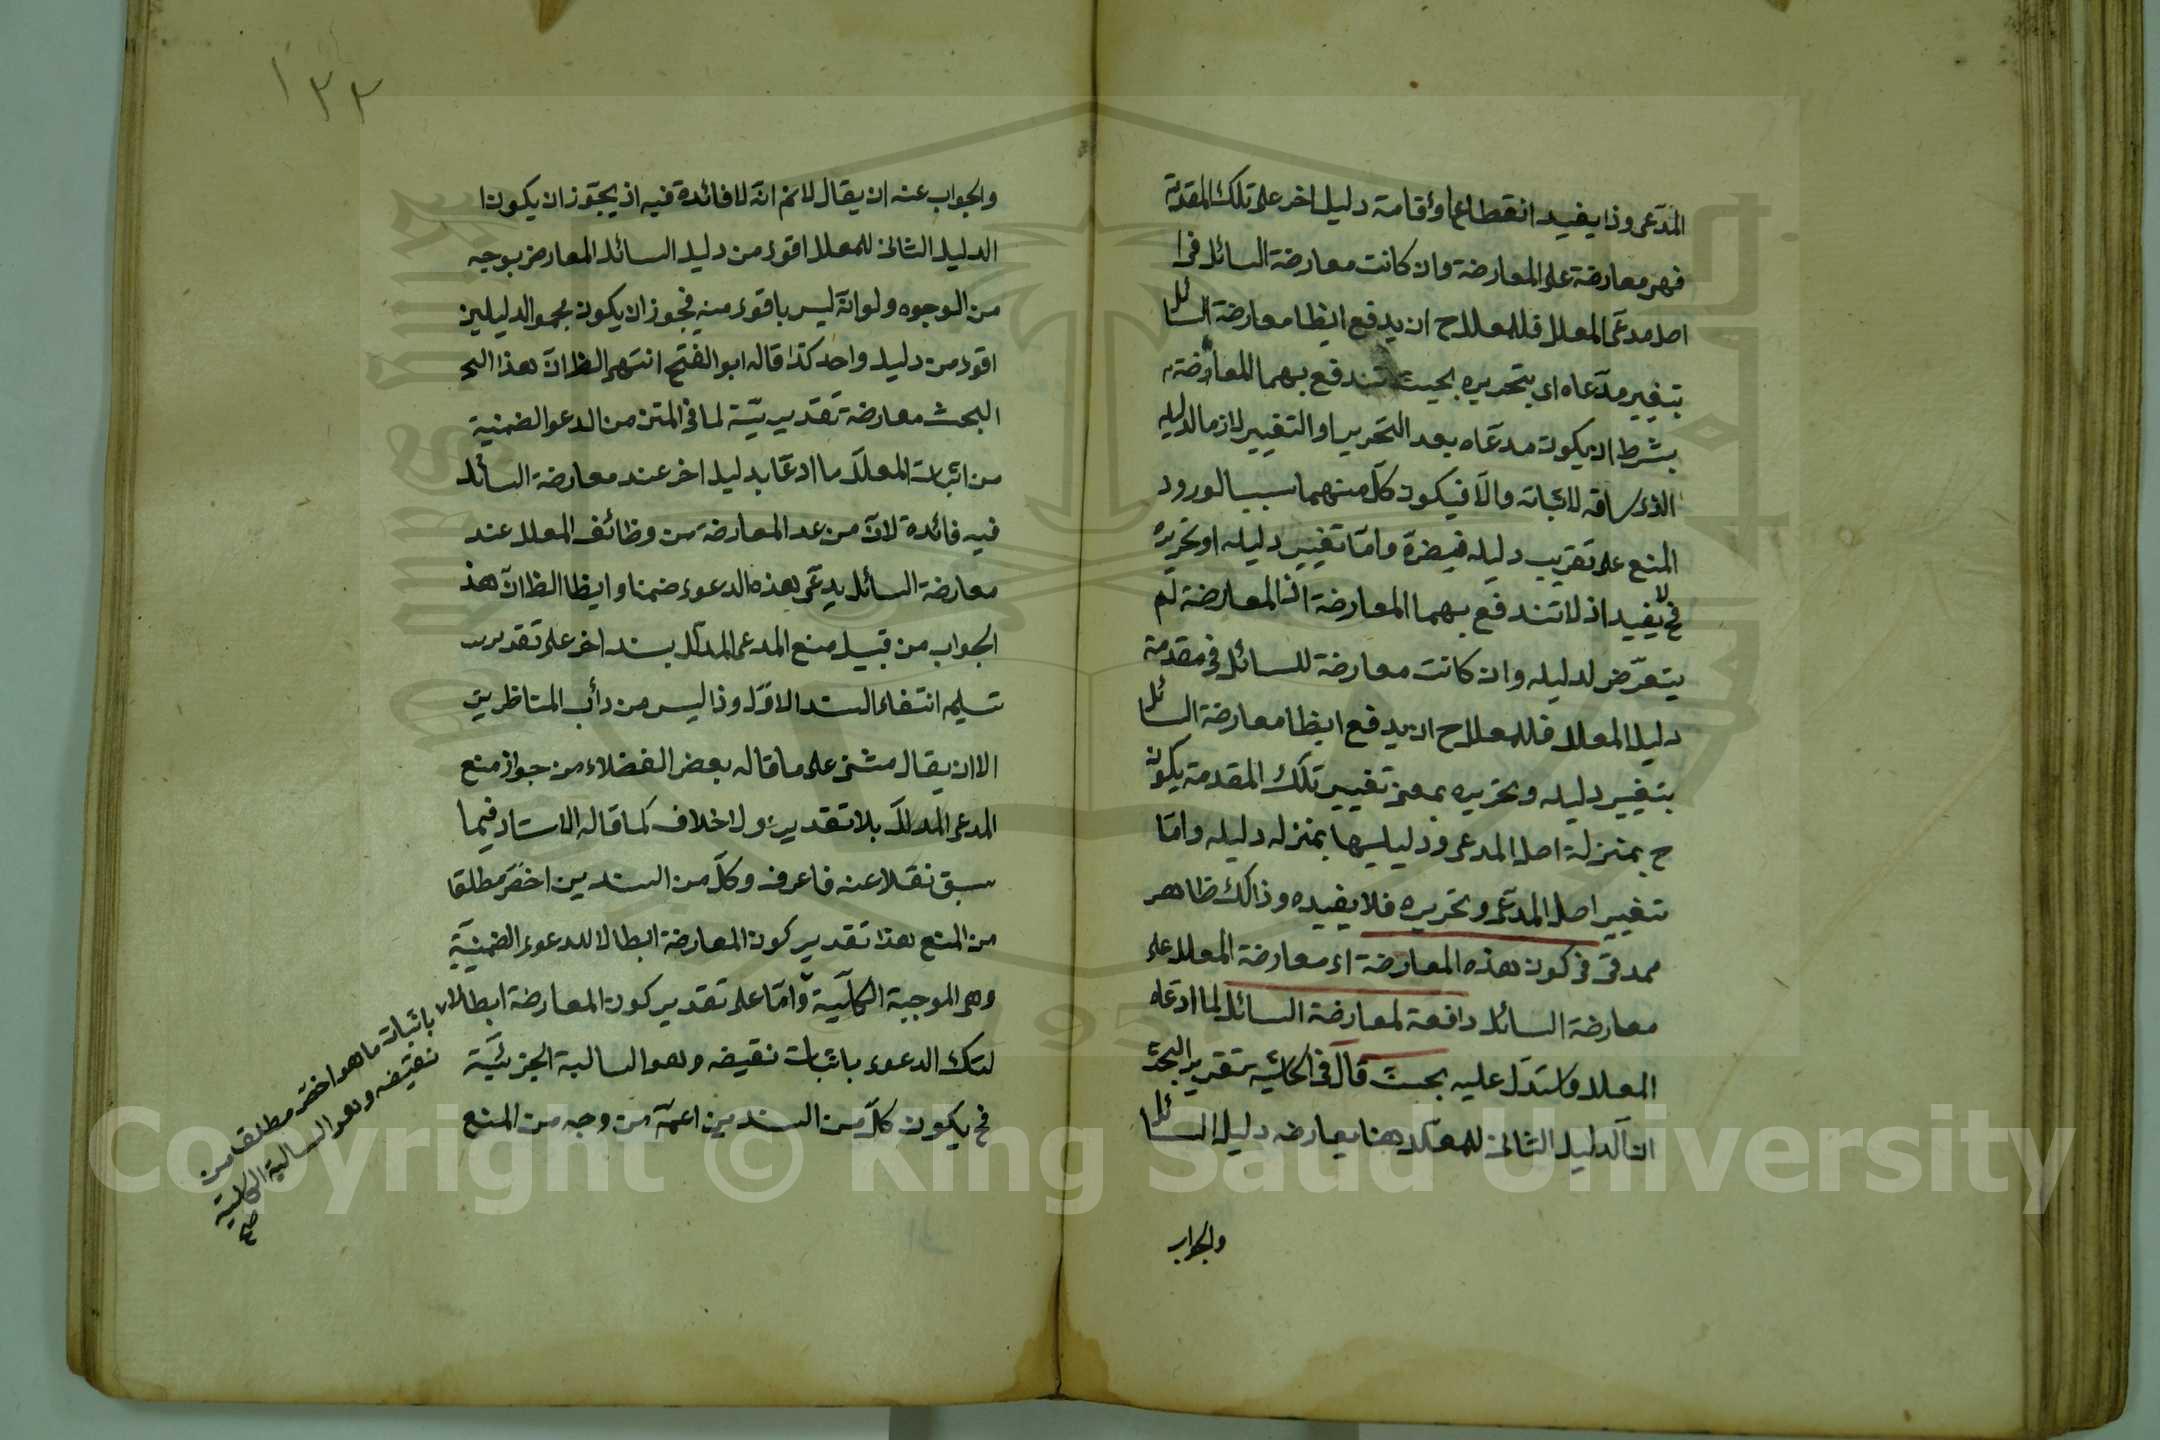 المدعى وذا يفيد انقطاعها واقامة دليل اخر على تلك المقدمة
فهى معارضة على المعارضة وان كانت معارضة السائل فى
اصل مدعى المعلل فللمعلل ح ان يدفع ايظا معارضة السائل
بتغيير مدعاه اى بتحريره بحيث تندفع بهما المعارضة
بشرط ان يكون مدعاه بعد التحرير او التغيير لازما لدليله
الذى ساقه لاثباته والا فيكون كل منهما سببا لورود
المنع على تقريب دليله فيضره واما تغيير دليله او تحريره
فح لا يفيد اذ لا تندفع بهما المعارضة اذ المعارضة لم
يتعرض لدليله وان كانت معارضة للسائل فى مقدمة
دليل المعلل فللمعلل ح ان يدفع ايظا معارضة السائل
بتغيير دليله وتحريره بمعنى تغيير تلك المقدمة يكون
ح بمنزلة اصل المدعى ودليلها بمنزله دليله واما
تغيير اصل المدعى وتحريره فلا يفيده وذالك ظاهر
ممدقى فى كون هذه المعارضة اى معارضة المعلل على
معارضة السائل دافعة لمعارضة السائل لما ادعاه
المعلل واستدل عليه بحث قال فى الحاشيه تقرير البحث
ان الدليل الثانى للمعلل هنا يعارضه دليل السائل
والجواب
١٣٣
والجواب عنه ان يقال لانم انه لا فائدة فيه اذ يجوز ان يكون
الدليل الثانى للمعلل اقوى من دليل السائل المعارض بوجه
من الوجوه ولو انه ليس باقوى منه فيجوز ان يكون مجمو الدليلين
اقوى من دليل واحد كذا قاله ابو الفتح انتهى الظ ان هذا البح
البحث معارضة تقديريّة لما فى المتن من الدعو الضمنية
من اثبات المعلل ما ادعا بدليل اخر عند معارضة السائل
فيه فائدة لان من عد المعارضة من وظائف المعلل عند
معارضة السائل يدعى بهذه الدعوى ضمنا وايظا الظ ان هذ
الجواب من قبيل منع المدعى المدلل بسند اخر على تقدير
تسليم انتفاء السند الاول وذا ليس من دأب المناظرين
الا ان يقال مشى على ما قاله بعض الفضلاء من جواز منع
المدعى المدلل بلا تقدير ولا خلاف كما قاله الاستاد فيما
سبق نقلا عنه فاعرف وكل من السندين اخص مطلقا
من المنع هذا تقدير كون المعارضة ابطالا للدعوى الضمنية
وهى الموجبة الكلّية واما على تقدير كون المعارضة ابطالا
لتك الدعوى باثبات نقيضه وهو السالبة الجزئيّة
فح يكون كل من السندين اعم من وجه من المنع
باثبات ما هو اخص مطلقا من
نقيضه وهو السالبة الكلية
صح
Copyright © King Saud University
1957